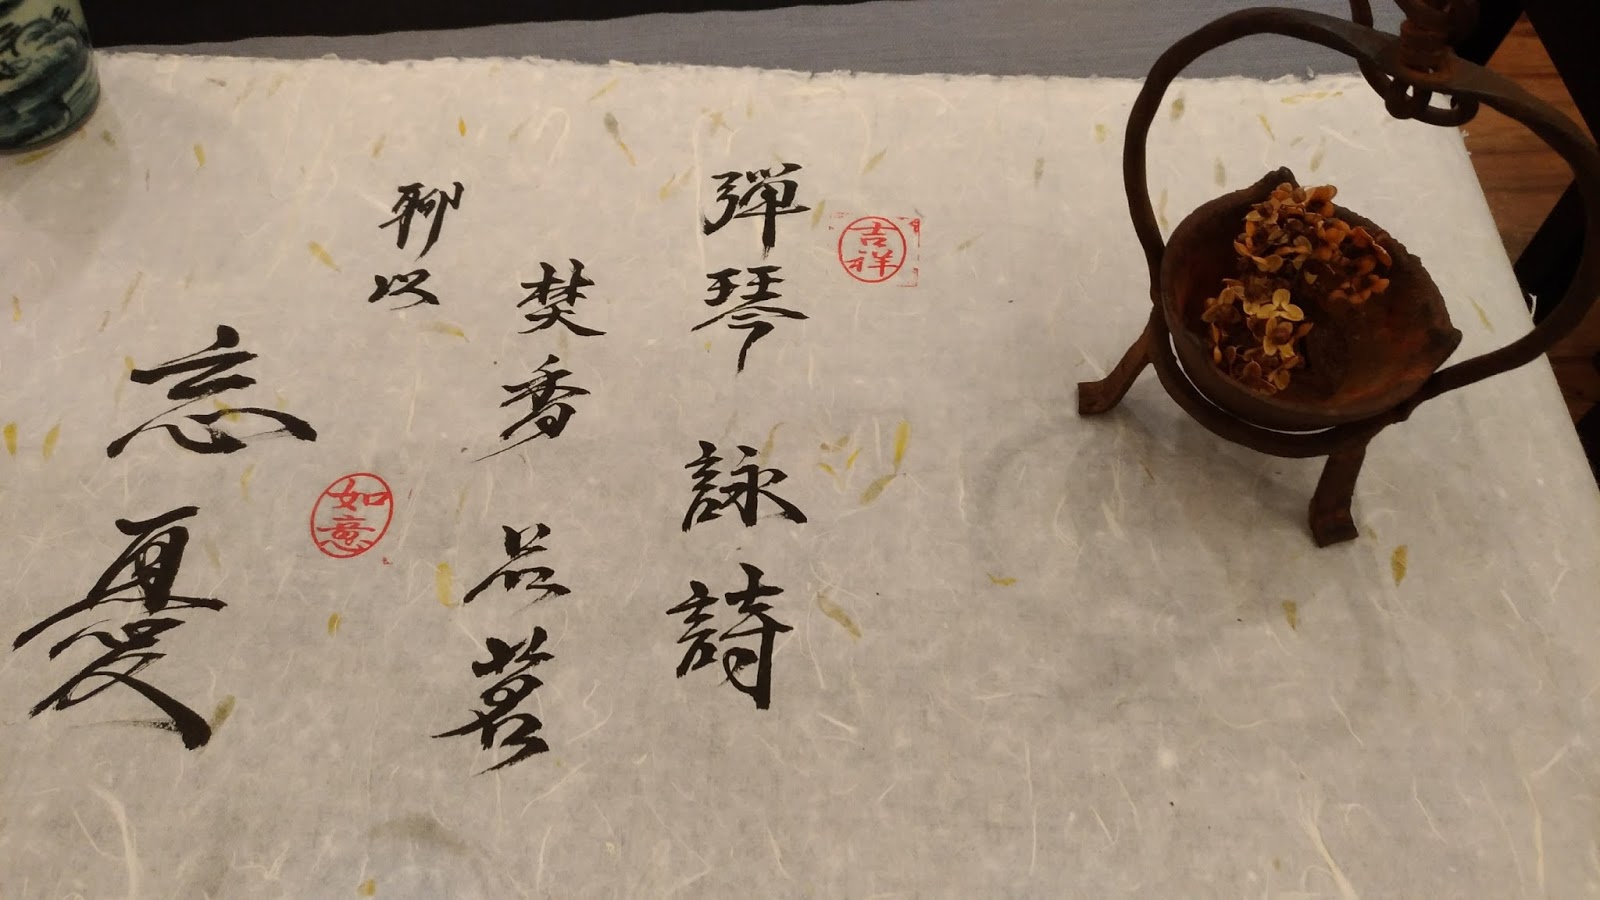 吉祥
彈琴詠詩
焚香品茗
聊以
忘憂
如意